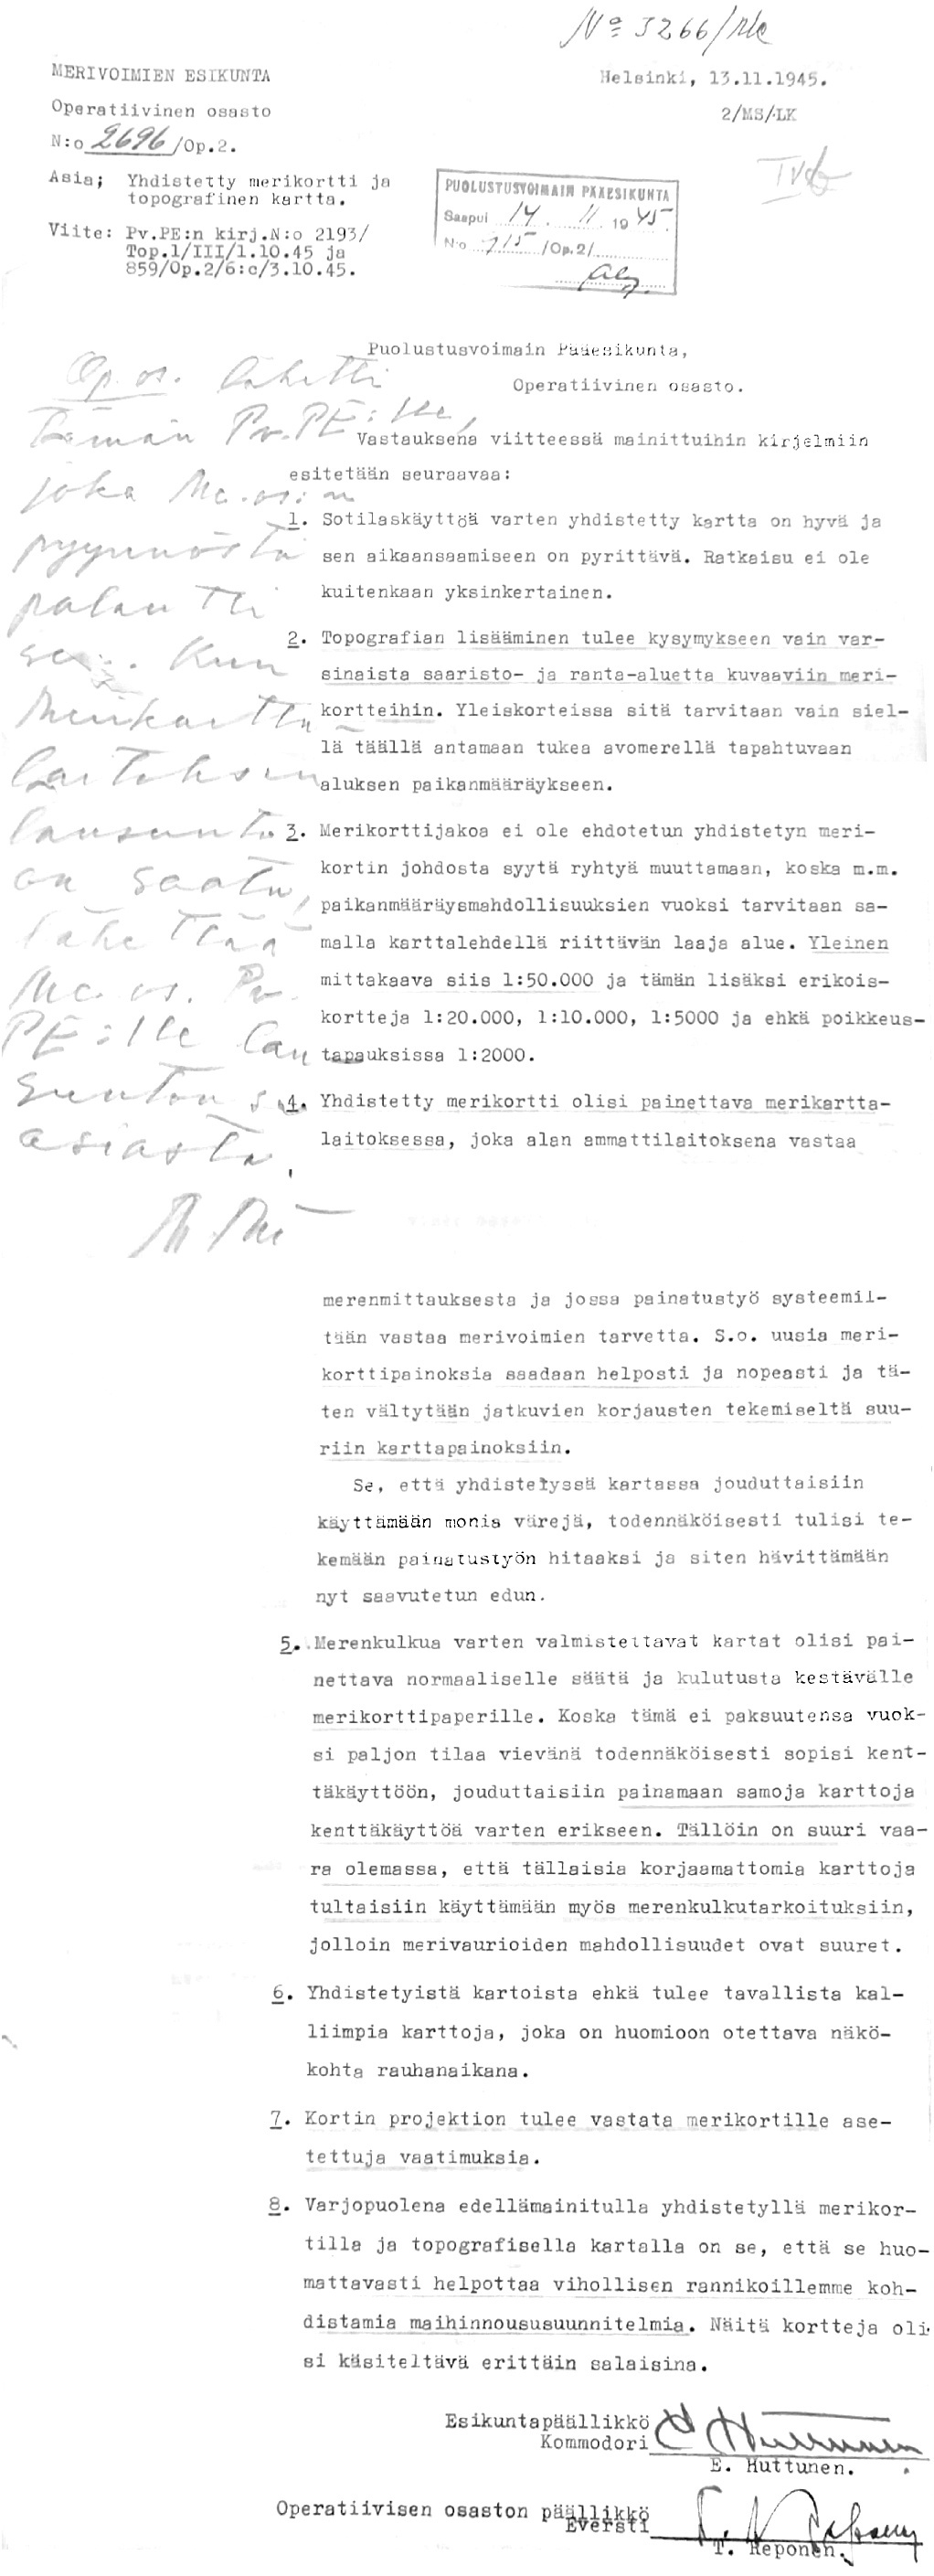 Nº 3266/
MERIVOIMIEN ESIKUNTA
Helsinki, 13.11.1945.
Operatiivinen osasto
2/MS/LK
N:o 2696/Op.2.
Asia; Yhdistetty merikortti ja
topografinen kartta.
PUOLUSTUSVOIMAIN PÄÄESIKUNTA
Saapui 14. 11 1945.
N:o 715 /Op.2/
Viite: Pv.PE:n kirj.N:o 2193/
Top.1/III/1.10.45 ja
859/Op.2/6:c/3.10.45.
Puolustusvoimain Pääesikunta,
Operatiivinen osasto.
Op.os. lähetti
Tämän Pv.PE:lle,
joka Mc.os:n
pyynnöstä
palautti
sen. Kun
Merikartta-
laitoksen
lausunto
on saatu,
lähettää
Mc.os. Pv.
PE:lle lau
sunton s
asiasta.
Vastauksena viitteessä mainittuihin kirjelmiin
esitetään seuraavaa:
1. Sotilaskäyttöä varten yhdistetty kartta on hyvä ja
sen aikaansaamiseen on pyrittävä. Ratkaisu ei ole
kuitenkaan yksinkertainen.
2. Topografian lisääminen tulee kysymykseen vain var-
sinaista saaristo- ja ranta-aluetta kuvaaviin meri-
kortteihin. Yleiskorteissa sitä tarvitaan vain siel-
lä täällä antamaan tukea avomerellä tapahtuvaan
aluksen paikanmääräykseen.
3. Merikorttijakoa ei ole ehdotetun yhdistetyn meri-
kortin johdosta syytä ryhtyä muuttamaan, koska m.m.
paikanmääräysmahdollisuuksien vuoksi tarvitaan sa-
malla karttalehdellä riittävän laaja alue. Yleinen
mittakaava siis 1:50.000 ja tämän lisäksi erikois-
kortteja 1:20.000, 1:10.000, 1:5000 ja ehkä poikkeus-
tapauksissa 1:2000.
4. Yhdistetty merikortti olisi painettava merikartta-
laitoksessa, joka alan ammattilaitoksena vastaa
merenmittauksesta ja jossa painatustyö systeemil-
tään vastaa merivoimien tarvetta. S.o. uusia meri-
korttipainoksia saadaan helposti ja nopeasti ja tä-
ten vältytään jatkuvien korjausten tekemiseltä suu-
riin karttapainoksiin.
Se, että yhdistetyssä kartassa jouduttaisiin
käyttämään monia värejä, todennäköisesti tulisi te-
kemään painatustyön hitaaksi ja siten hävittämään
nyt saavutetun edun.
5. Merenkulkua varten valmistettavat kartat olisi pai-
nettava normaaliselle säätä ja kulutusta kestävälle
merikorttipaperille. Koska tämä ei paksuutensa vuok-
si paljon tilaa vievänä todennäköisesti sopisi kent-
täkäyttöön, jouduttaisiin painamaan samoja karttoja
kenttäkäyttöä varten erikseen. Tällöin on suuri vaa-
ra olemassa, että tällaisia korjaamattomia karttoja
tultaisiin käyttämään myös merenkulkutarkoituksiin,
jolloin merivaurioiden mahdollisuudet ovat suuret.
6. Yhdistetyistä kartoista ehkä tulee tavallista kal-
liimpia karttoja, joka on huomioon otettava näkö-
kohta rauhanaikana.
7. Kortin projektion tulee vastata merikortille ase-
tettuja vaatimuksia.
8. Varjopuolena edellämainitulla yhdistetyllä merikor-
tilla ja topografisella kartalla on se, että se huo-
mattavasti helpottaa vihollisen rannikoillemme koh-
distamia maihinnoususuunnitelmia. Näitä kortteja oli-
si käsiteltävä erittäin salaisina.
Esikuntapäällikkö
Kommodori
E. Huttunen.
Operatiivisen osaston päällikkö
Eversti
T. Reponen.